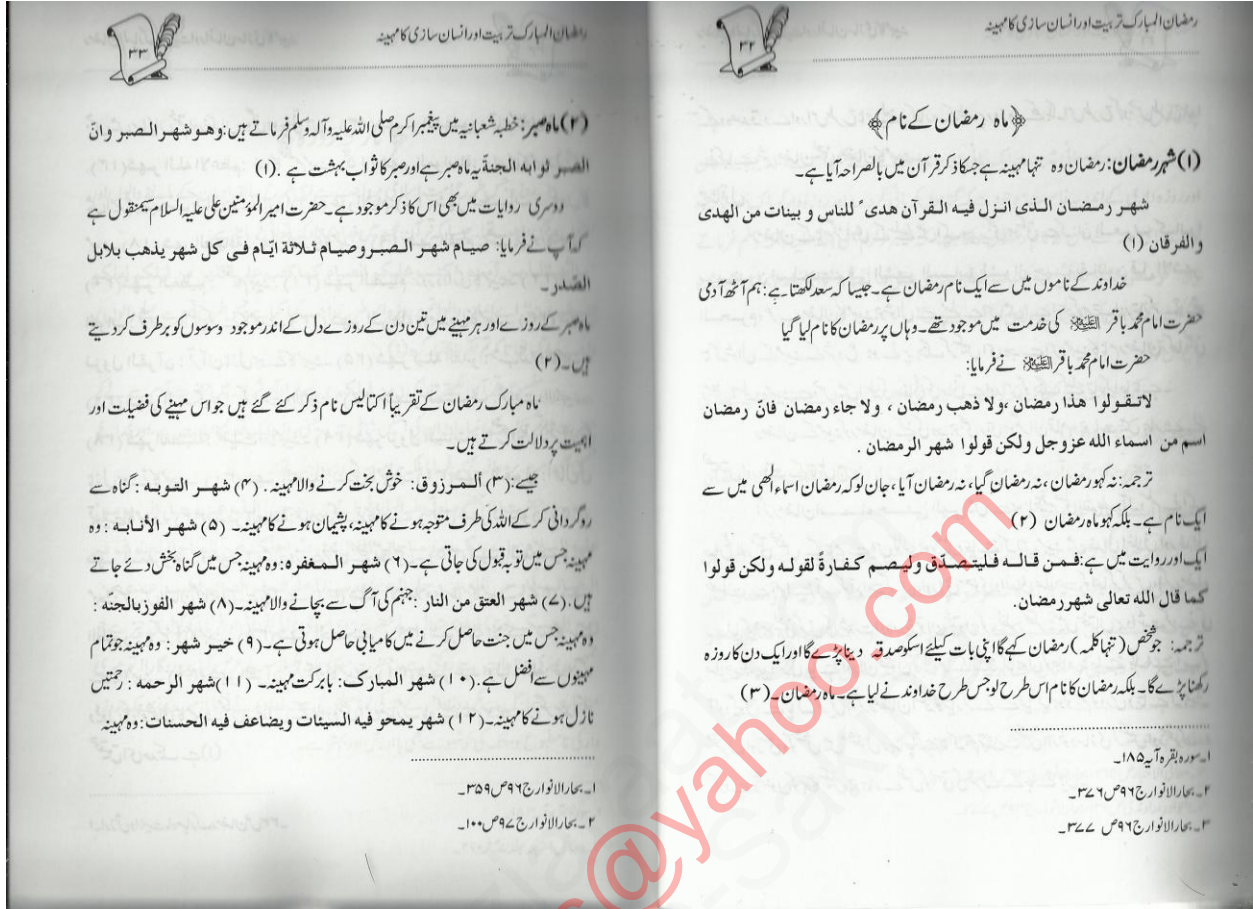 رمضان المبارک تربیت اور انسان سازی کا مہینہ
۳۲
﴿ماہ رمضان کے نام﴾
(۱) شہر رمضان: رمضان وہ تنہا مہینہ ہے جسکا ذکر قرآن میں بالصراحہ آیا ہے۔
شهر رمضان الذی انزل فیه القرآن هدیً للناس و بینات من الهدی
والفرقان (۱)
خداوند کے ناموں میں سے ایک نام رمضان ہے۔ جیسا کہ سعد لکھتا ہے: ہم آٹھ آدمی
حضرت امام محمد باقر علیہ السلام کی خدمت میں موجود تھے۔ وہاں پر رمضان کا نام لیا گیا
حضرت امام محمد باقر علیہ السلام نے فرمایا:
لاتقولوا هذا رمضان ،ولا ذهب رمضان ، ولا جاء رمضان فانّ رمضان
اسم من اسماء الله عزوجل ولکن قولوا شهر الرمضان .
ترجمہ: نہ کہو رمضان ، نہ رمضان گیا، نہ رمضان آیا ، جان لو کہ رمضان اسماء الٰھی میں سے
ایک نام ہے۔ بلکہ کہو ماہ رمضان (۲)
ایک اور روایت میں ہے: فمن قاله فلیتصدّق ولیصم کفارةً لقوله ولکن قولوا
کما قال الله تعالی شهر رمضان.
ترجمہ: جو شخص (تنہا کلمہ) رمضان کہے گا اپنی بات کیلئے اسکو صدقہ دینا پڑے گا اور ایک دن کا روزہ
رکھنا پڑے گا۔ بلکہ رمضان کا نام اس طرح لو جس طرح خداوند نے لیا ہے۔ ماہ رمضان۔ (۳)
۱۔ سورہ بقرہ آیہ ۱۸۵۔
۲۔ بحار الانوار ج ۹۶ ص ۳۷۶۔
۳۔ بحار الانوار ج ۹۶ ص ۳۷۷۔
رمضان المبارک تربیت اور انسان سازی کا مہینہ
۳۳
(۲) ماہ صبر: خطبہ شعبانیہ میں پیغمبر اکرم صلی اللہ علیہ وآلہ وسلم فرماتے ہیں: وهو شهر الصبر وانّ
الصبر ثوابه الجنة یہ ماہ صبر ہے اور صبر کا ثواب بہشت ہے .(۱)
دوسری روایات میں بھی اس کا ذکر موجود ہے۔ حضرت امیر المؤمنین علی علیہ السلام سے منقول ہے
کہ آپ نے فرمایا: صیام شهر الصبر وصیام ثلاثة ایّام فی کل شهر یذهب بلابل
الصّدر۔
ماہ صبر کے روزے اور ہر مہینے میں تین دن کے روزے دل کے اندر موجود وسوسوں کو برطرف کر دیتے
ہیں۔ (۲)
ماہ مبارک رمضان کے تقریباً اکتالیس نام ذکر کئے گئے ہیں جو اس مہینے کی فضیلت اور
اہمیت پر دلالت کرتے ہیں۔
جیسے: (۳) المرزوق: خوش بخت کرنے والا مہینہ. (۴) شهر التوبه : گناہ سے
روگردانی کر کے اللہ کی طرف متوجہ ہونے کا مہینہ، پشیمان ہونے کا مہینہ۔ (۵) شهر الأنابه : وہ
مہینہ جس میں توبہ قبول کی جاتی ہے۔ (۶) شهر المغفره: وہ مہینہ جس میں گناہ بخش دئے جاتے
ہیں. (۷) شهر العتق من النار : جہنم کی آگ سے بچانے والا مہینہ۔ (۸) شهر الفوز بالجنّه :
وہ مہینہ جس میں جنت حاصل کرنے میں کامیابی حاصل ہوتی ہے۔ (۹) خیر شهر: وہ مہینہ جو تمام
مہینوں سے افضل ہے. (۱۰) شهر المبارک: بابرکت مہینہ۔ (۱۱) شهر الرحمه : رحمتیں
نازل ہونے کا مہینہ۔ (۱۲) شهر یمحو فیه السیئات ویضاعف فیه الحسنات: وہ مہینہ
۱۔ بحار الانوار ج ۹۶ ص ۳۵۹۔
۲۔ بحار الانوار ج ۹۷ ص ۱۰۰۔
@yahoo.com